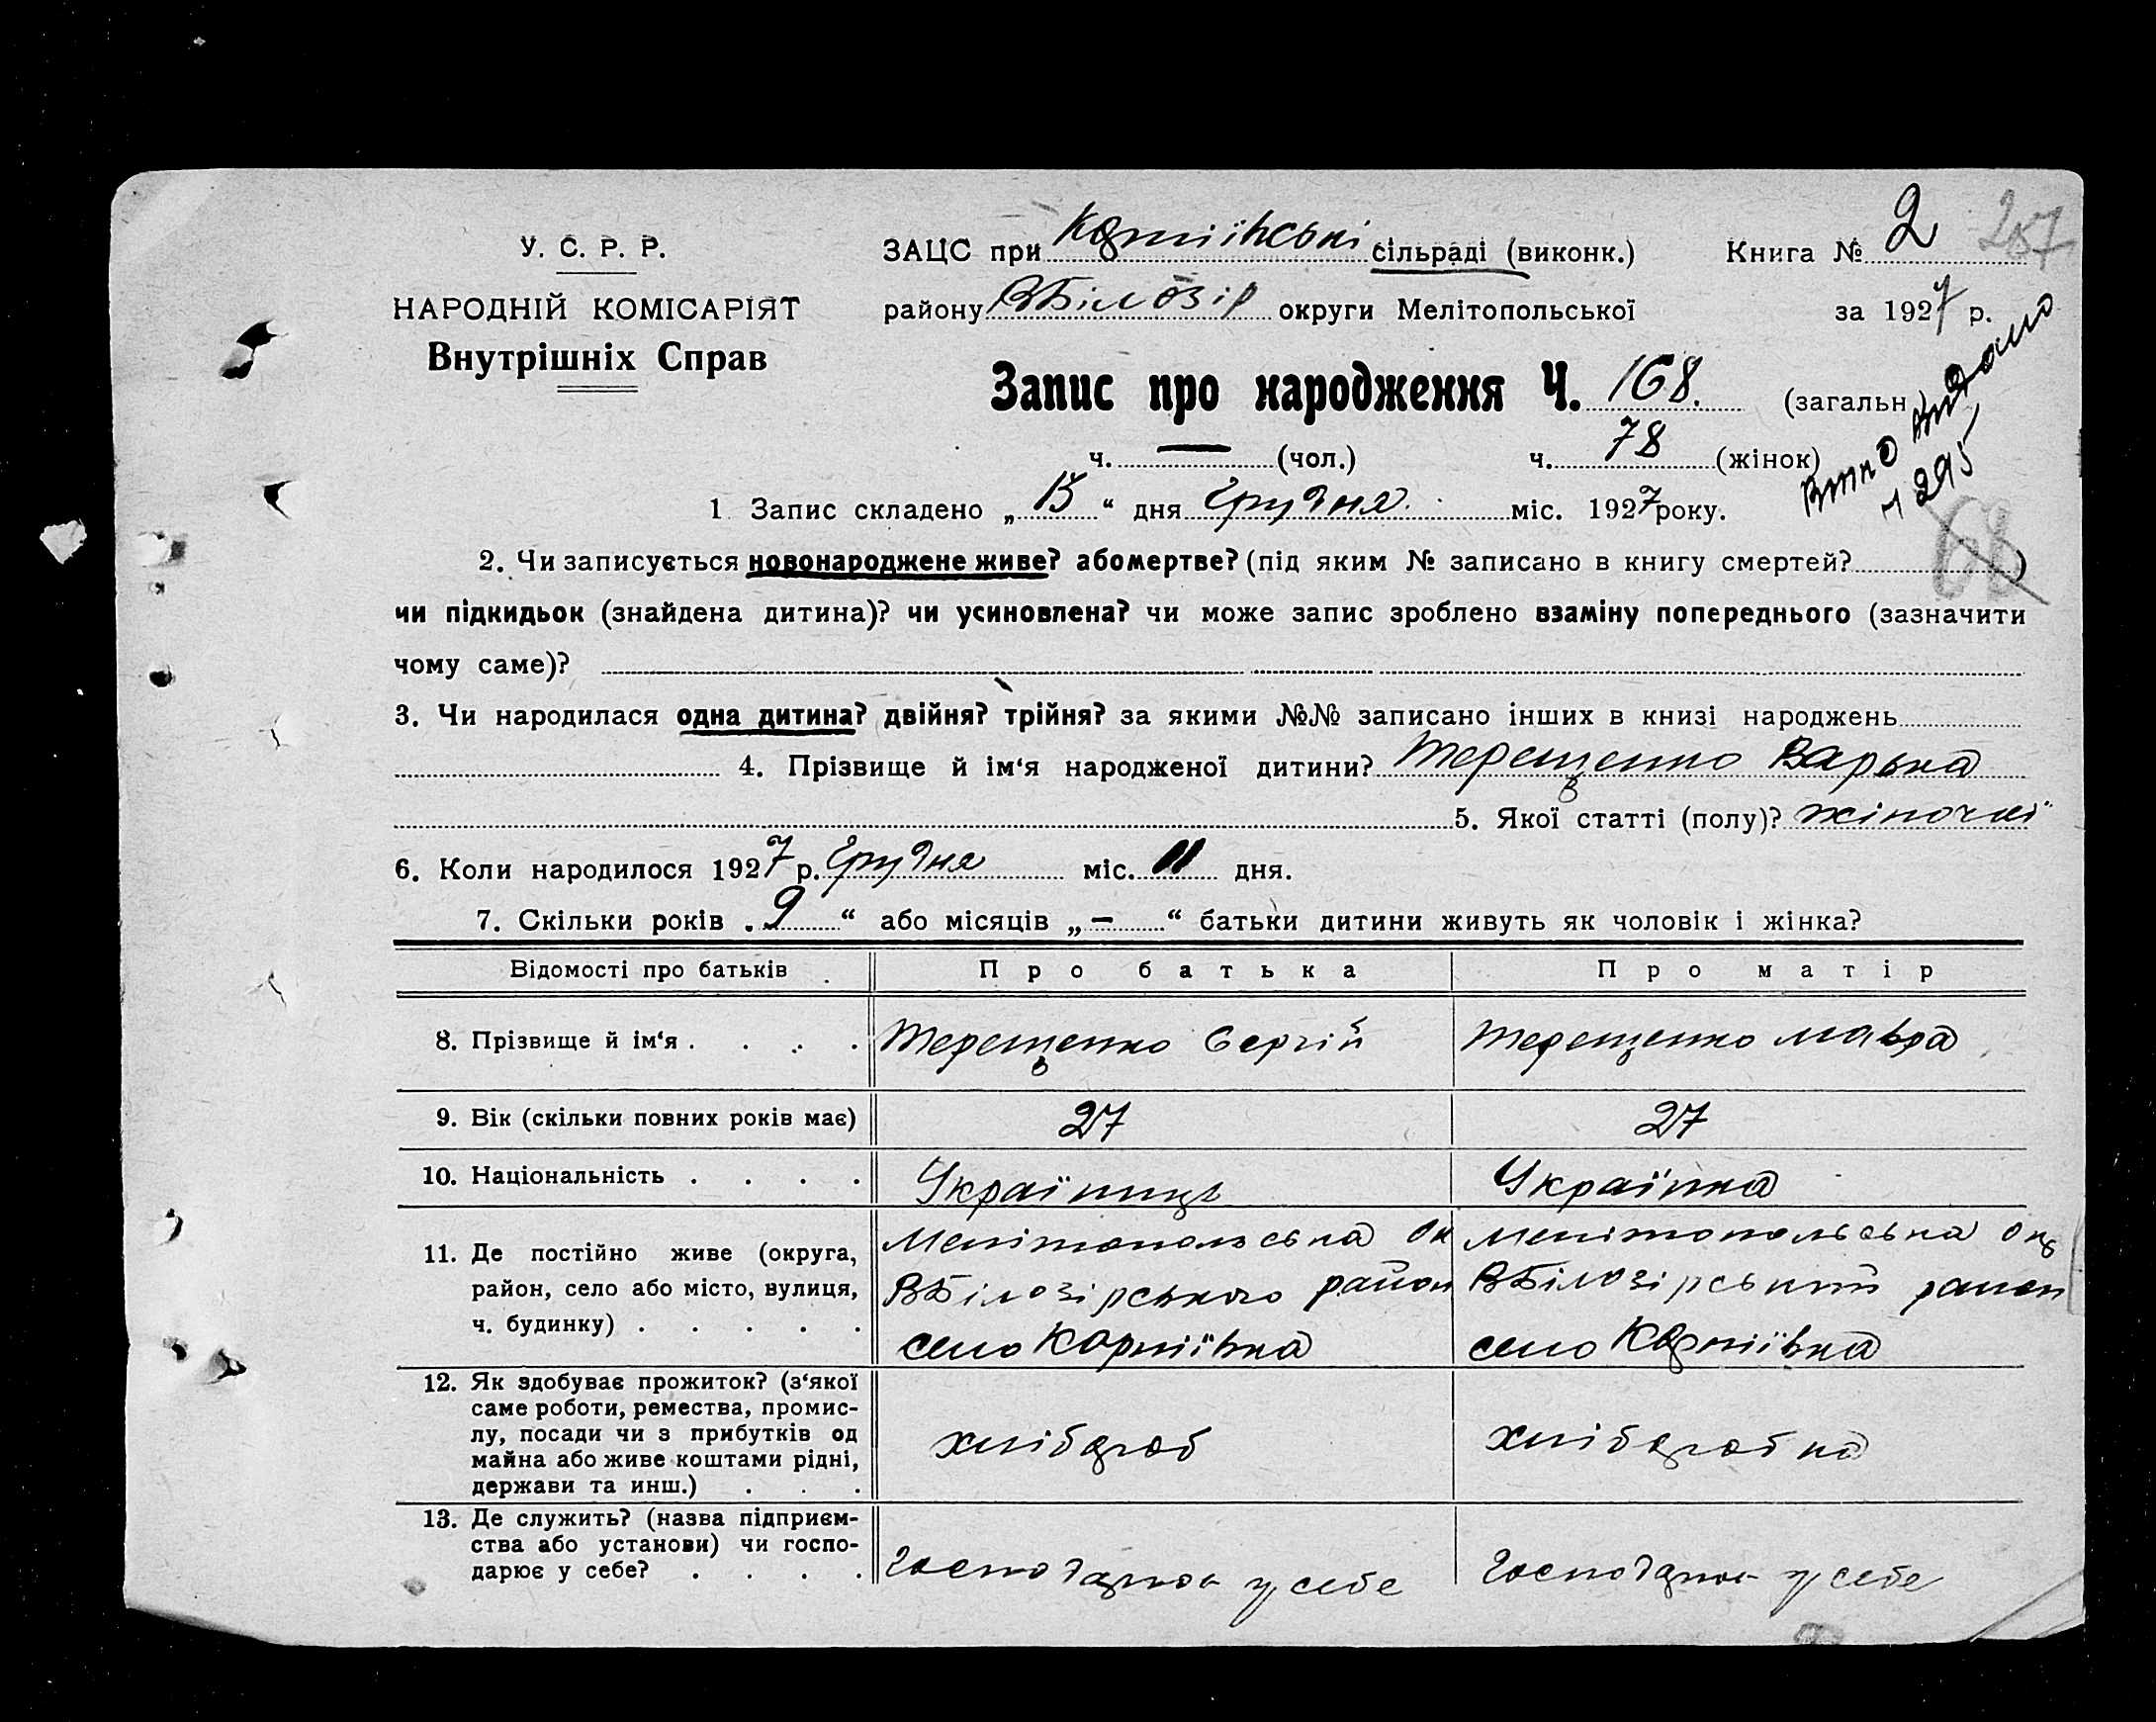 У. С. Р. Р.
НАРОДНІЙ КОМІСАРІЯТ
Внутрішніх Справ
ЗАЦС при сільраді (виконк.) Книга № 2 257
району ВБілозір округи Мелітопольської за 1927 р.
Запис про народження Ч. 168. (загальн)
ч. — (чол.) ч. 78 (жінок)
видано
ч 295
68
1 Запис складено „15“ дня Грудня міс. 1927 року.
2. Чи записується новонароджене живе? або мертве? (під яким № записано в книгу смертей? )
чи підкидьок (знайдена дитина)? чи усиновлена? чи може запис зроблено взаміну попереднього (зазначити
чому саме)?
3. Чи народилася одна дитина? двійня? трійня? за якими №№ записано інших в книзі народжень
4. Прізвище й ім‘я народженої дитини? Терещенко Варька
5. Якої статті (полу)? жіночої
6. Коли народилося 1927 р. Грудня міс. 11 дня.
7. Скільки років „9“ або місяців „—“ батьки дитини живуть як чоловік і жінка?
Відомості про батьків Про батька Про матір
8. Прізвище й ім‘я . . . . Терещенко Сергій Терещенко Мавра
9. Вік (скільки повних років має) 27 27
10. Національність . . . . Українець Українка
11. Де постійно живе (округа, Мелітопольська Ок Мелітопольська Окр
район, село або місто, вулиця, ВБілозірського район ВБілозірський район
ч. будинку) . . . . . село Корніївка село Корніївка
12. Як здобуває прожиток? (з‘якої
саме роботи, ремества, промис-
лу, посади чи з прибутків од хлібороб хліборобка
майна або живе коштами рідні,
держави та инш.) . . .
13. Де служить? (назва підприєм-
ства або установи) чи госпо-
дарює у себе? . . . . Господарює у себе Господарює у себе